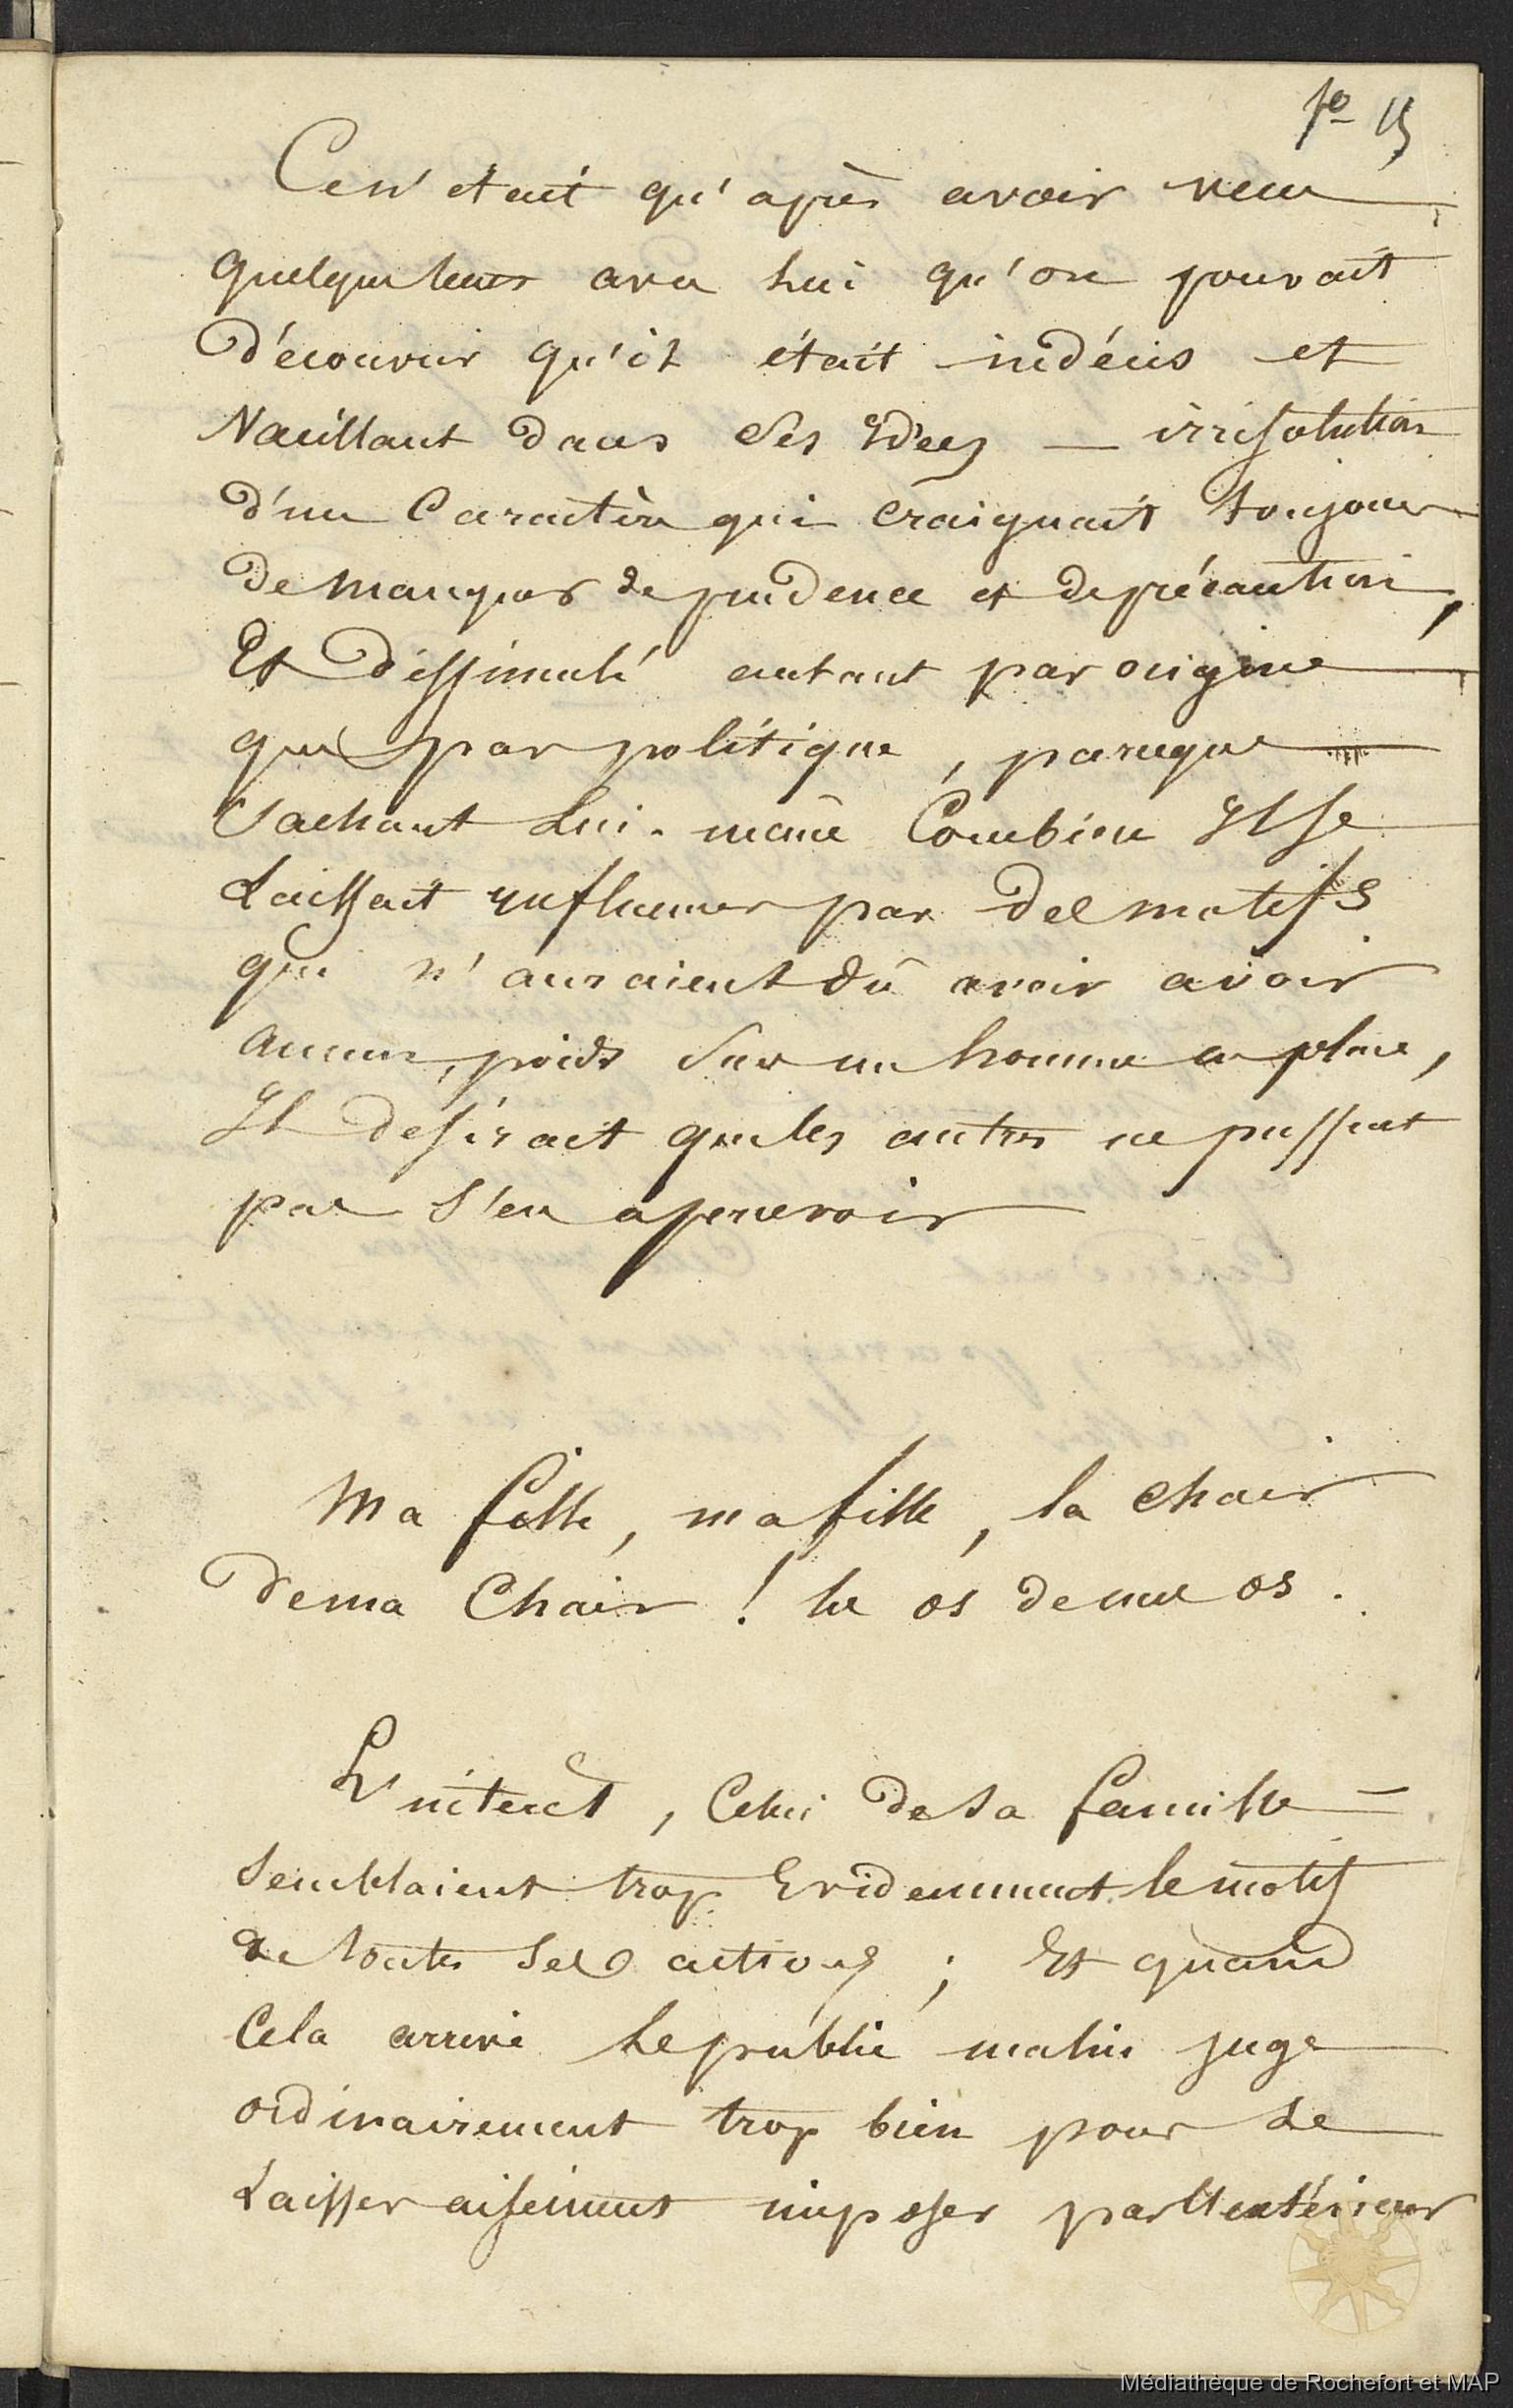 fo 15
Ce n'etait qu'après avoir vecu
quelque tems avec lui qu'on pouvait
découvrir qu'il était indécis et
Vacillant dans ses Idées — irrisolution
d'un Caractère qui craignait toujours
de manquer de prudence et de précaution,
Et dissimulé autant par origine
que par politique, parceque
Sachant lui-même Combien Il se
Laissait influencer par des motifs
qui n'auraient dû avoir avoir
aucun poids sur un homme en place,
Il désirait que les autres ne pussent
pas s'en apercevoir
Ma fille, ma fille, la chair
de ma Chair ! les os de mes os.
L'interêt, Celui de sa famille =
Semblaient trop Evidemment le motif
de toutes ses actions ; Et quand
Cela arrive le public malin juge
ordinairement trop bien pour se
Laisser aisément imposer par l'extérieur
Médiathèque de Rochefort et MAP